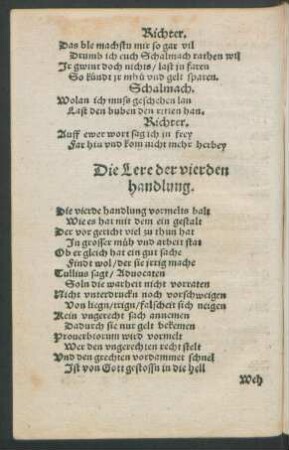 Richter.
Das ble machstu mir so gar vil
Drumb ich euch Schalmach rathen wil
Ir gwint doch nichts / last jr faren
So kündt jr mhü vnd gelt sparen.
Schalmach.
Wolan ich muss geschehen lan
Last den buben den ritten han.
Richter.
Auff ewer wort sag ich in frey
Far hin vnd kom nicht mehr herbey
Die Lere der vierden
handlung.
Die vierde handlung vormelts balt
Wie es hat mit dem ein gestalt
Der vor gericht viel zu thun hat
In grosser müh vnd arbeit stat
Ob er gleich hat ein gut sache
Findt wol / der sie jerig mache
Tullius sagt / Aduocaten
Soln die warheit nicht vorraten
Nicht vnterdruckn noch vorschweigen
Von liegn / trign / falscheit sich neigen
Kein vngerecht sach annemen
Dadurch sie nur gelt bekemen
Prouerbiorum wird vormelt
Wer den vngerechten recht stelt
Vnd den grechten vordammet schnel
Ist von Gott gestossn in die hell
Weh